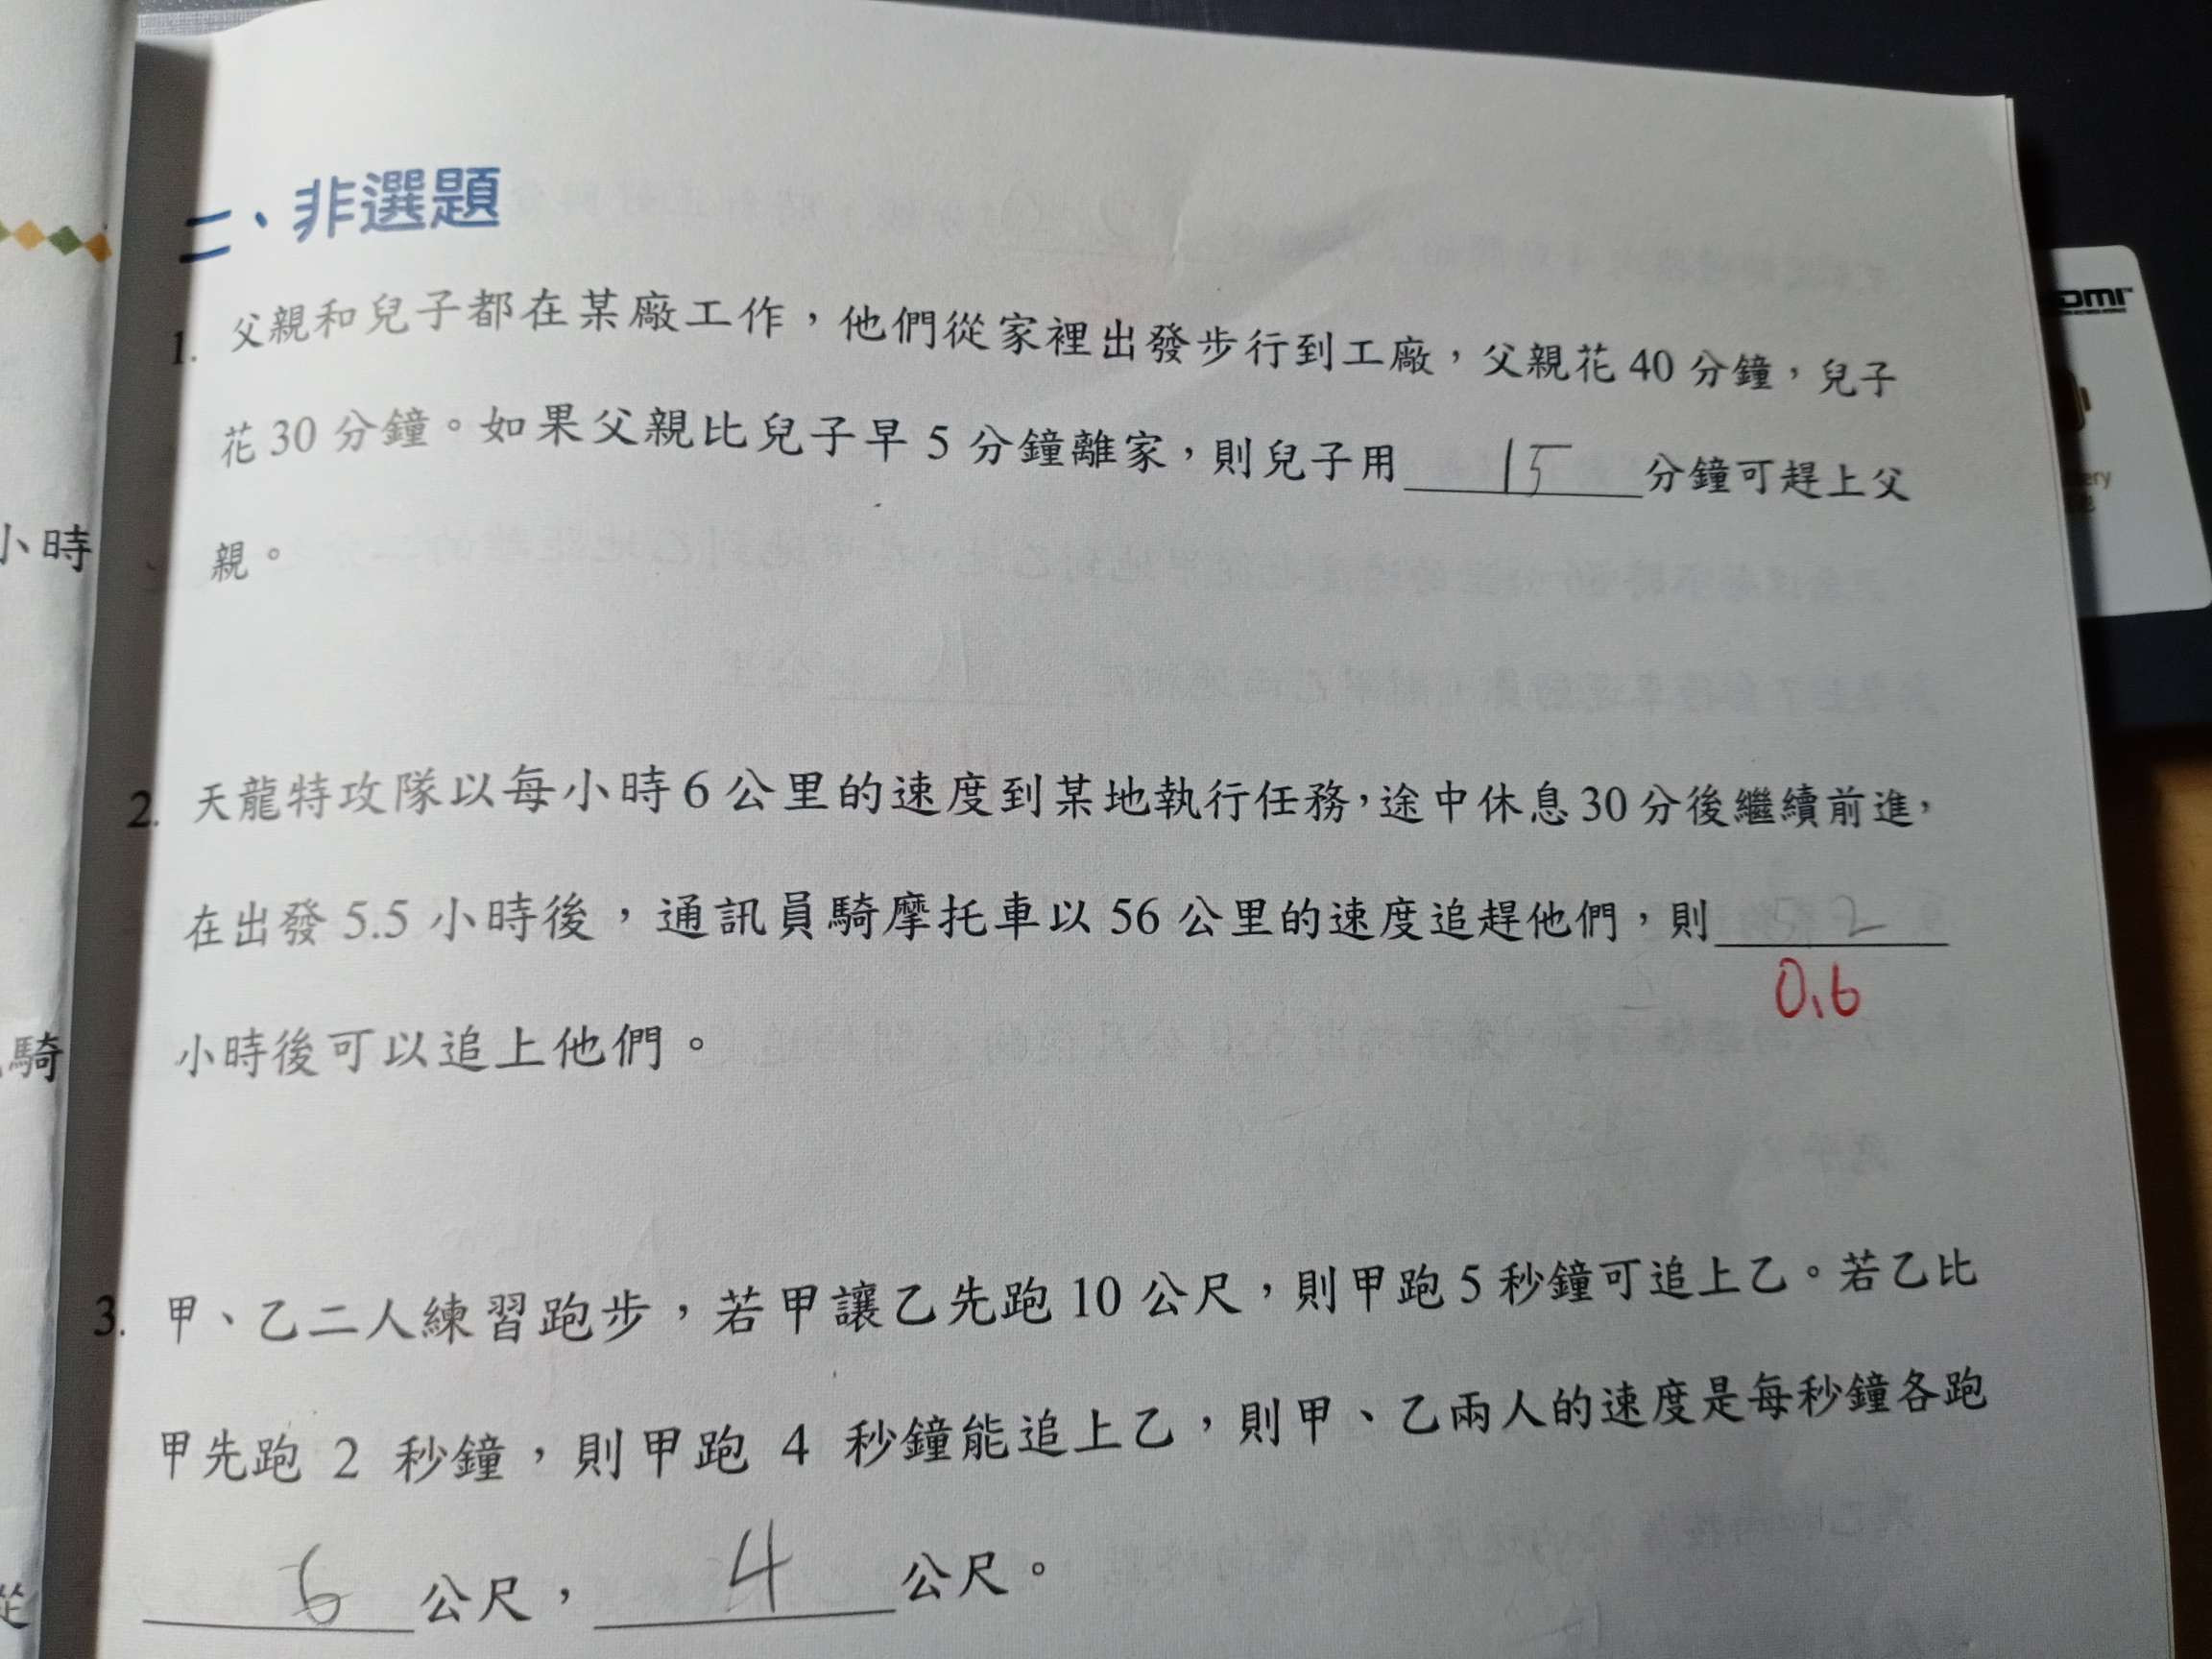 二、非選題
1. 父親和兒子都在某廠工作，他們從家裡出發步行到工廠，父親花 40 分鐘，兒子
花 30 分鐘。如果父親比兒子早 5 分鐘離家，則兒子用 15 分鐘可趕上父
親。
小時
2. 天龍特攻隊以每小時 6 公里的速度到某地執行任務，途中休息 30 分後繼續前進，
在出發 5.5 小時後，通訊員騎摩托車以 56 公里的速度追趕他們，則 52
0.6
小時後可以追上他們。
騎
3. 甲、乙二人練習跑步，若甲讓乙先跑 10 公尺，則甲跑 5 秒鐘可追上乙。若乙比
甲先跑 2 秒鐘，則甲跑 4 秒鐘能追上乙，則甲、乙兩人的速度是每秒鐘各跑
6 公尺， 4 公尺。